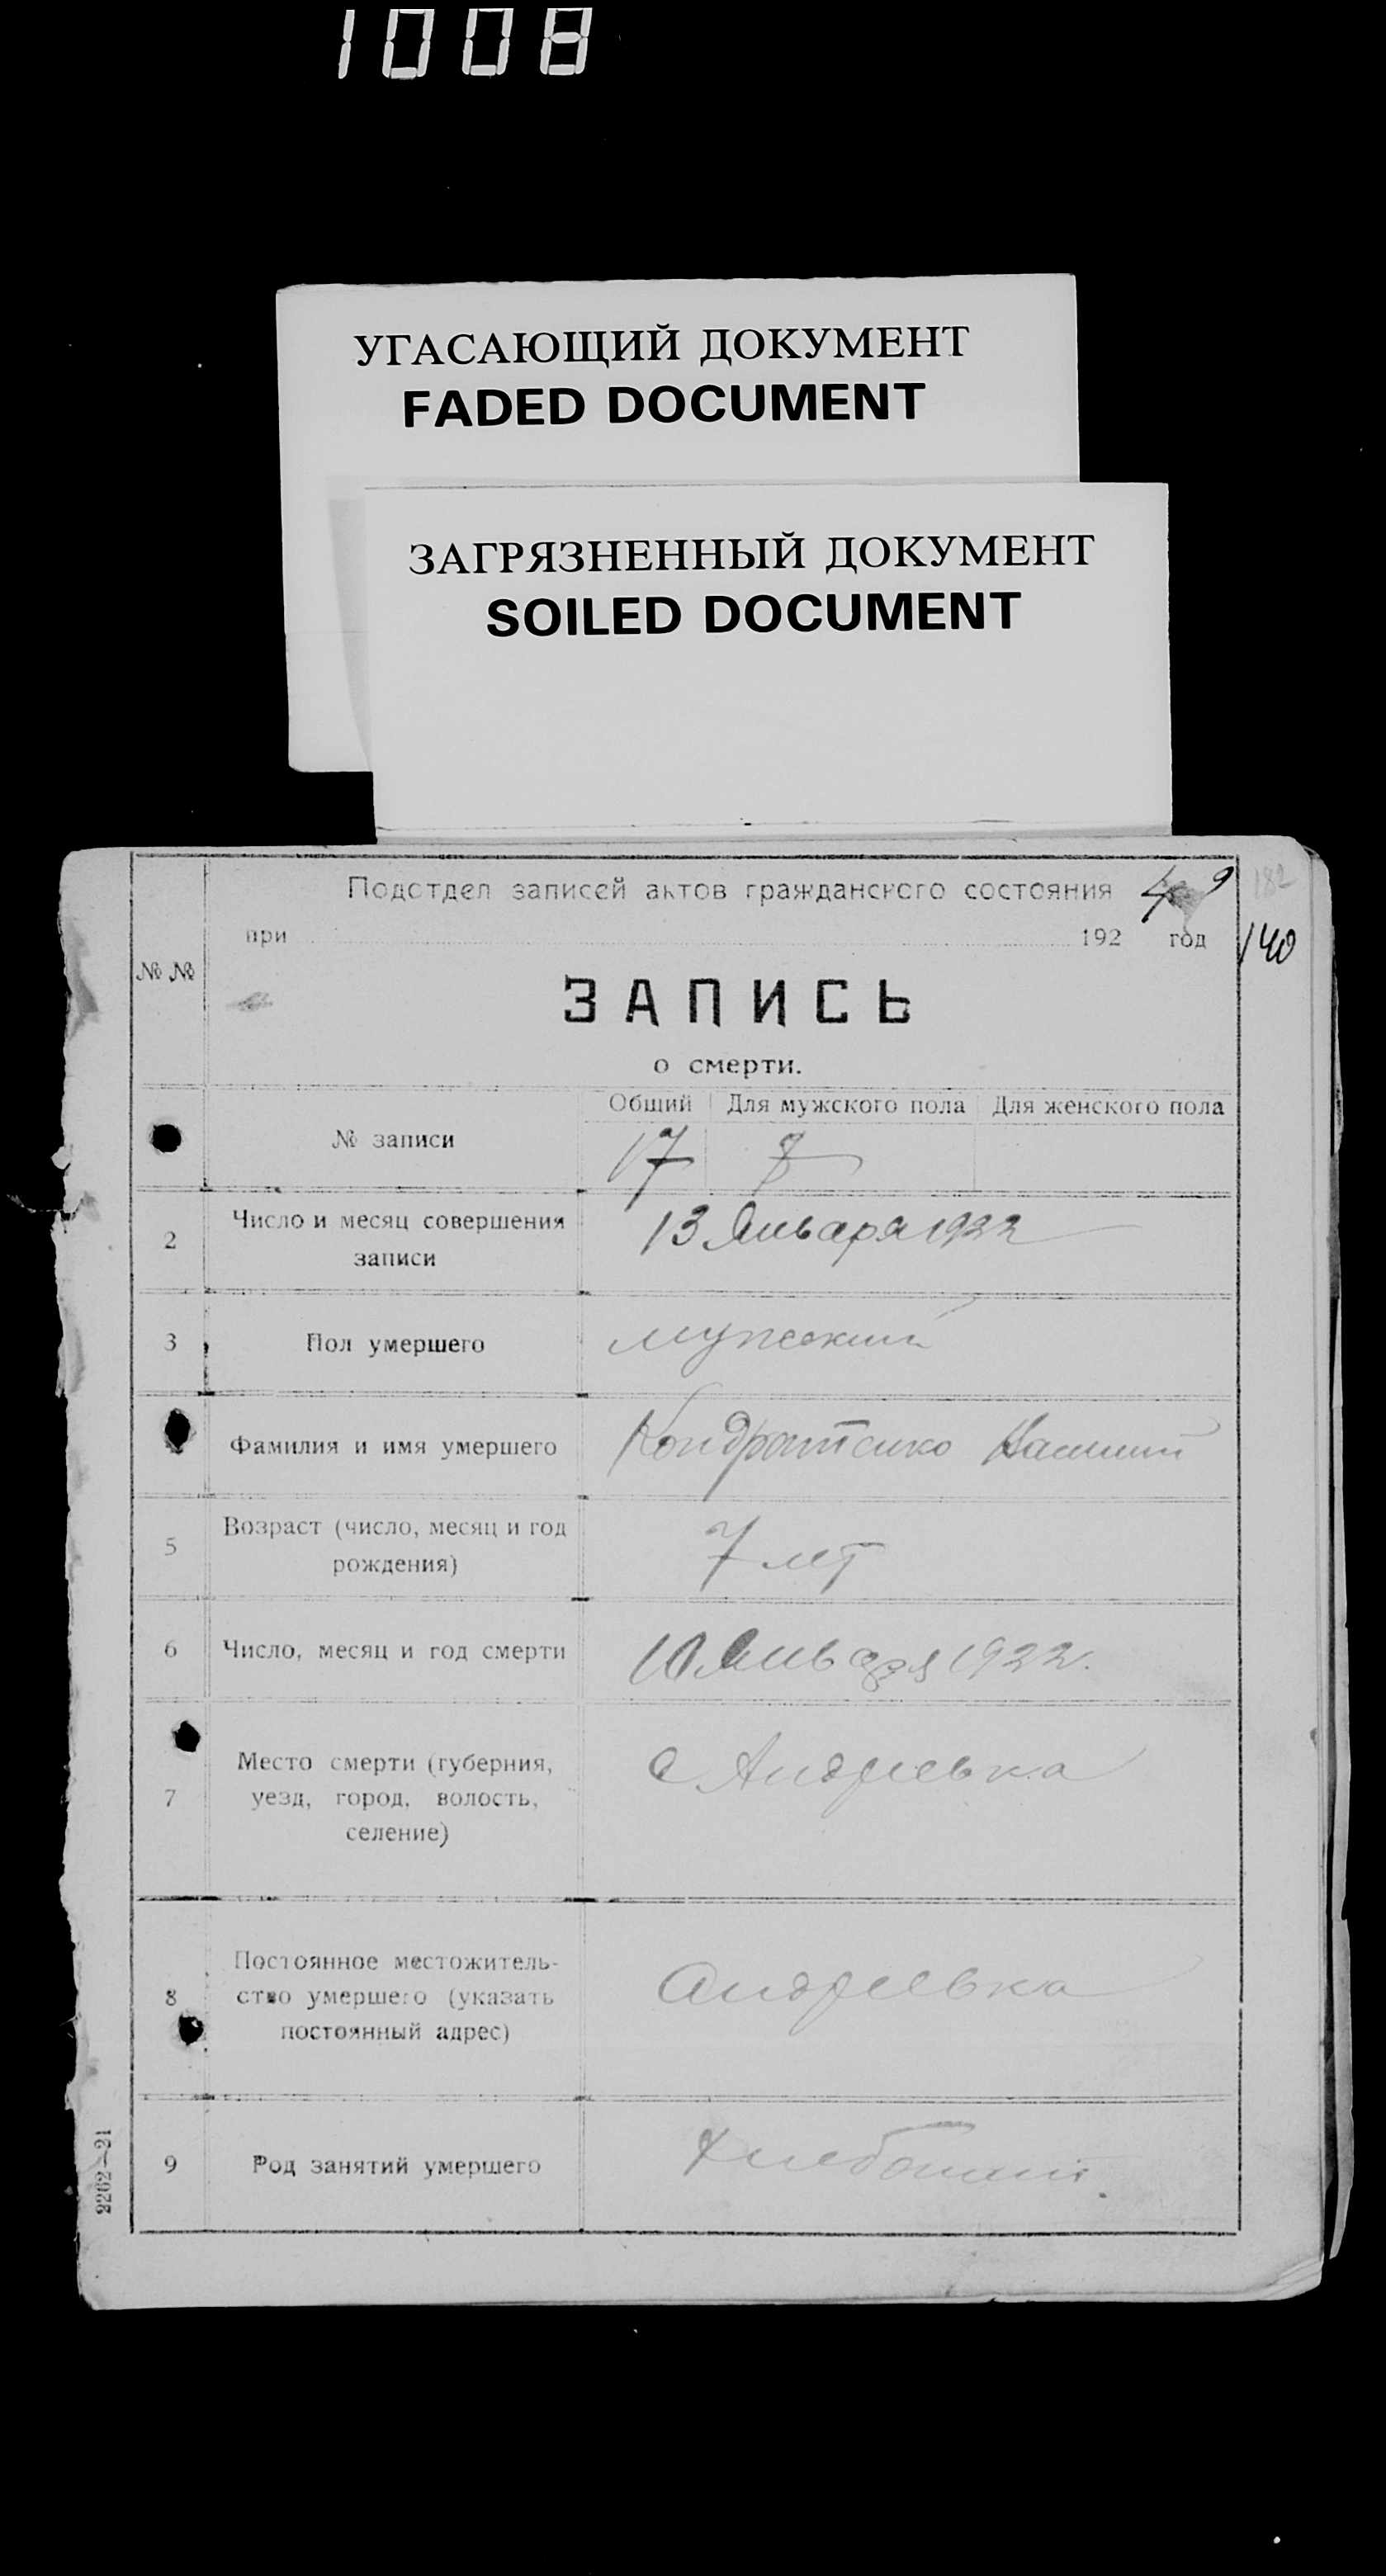 1008
УГАСАЮЩИЙ ДОКУМЕНТ
FADED DOCUMENT
ЗАГРЯЗНЕННЫЙ ДОКУМЕНТ
SOILED DOCUMENT
Подотдел записей актов гражданского состояния
182
при 192 год
140
№ №
ЗАПИСЬ
о смерти.
Общий Для мужского пола Для женского пола
№ записи 17 8
2 Число и месяц совершения
записи
13 Января 1922
3 Пол умершего мужской
Фамилия и имя умершего Кондратенко
5 Возраст (число, месяц и год
рождения)
7 лет
6 Число, месяц и год смерти 10 Января 1922.
7 Место смерти (губерния,
уезд, город, волость,
селение)
с Андреевка
8 Постоянное местожитель-
ство умершего (указать
постоянный адрес)
Андреевка
9 Род занятий умершего
2262—21